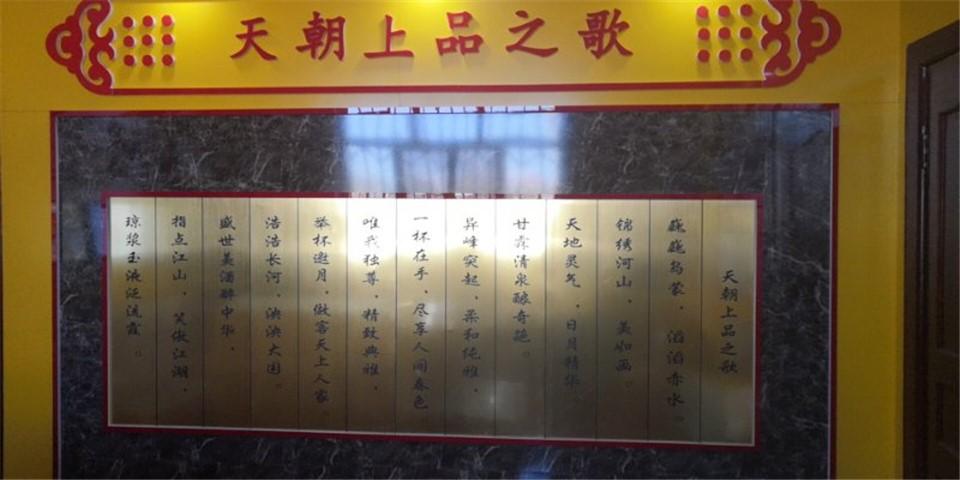 天朝上品之歌
天朝上品之歌
巍巍乌蒙，滔滔赤水。
锦绣河山，美如画。
天地灵气，日月精华。
甘霖清泉酿奇葩。
异峰突起，柔和纯雅，
一杯在手，尽享人间春色
唯我独尊，精致典雅，
举杯邀月，做客天上人家。
浩浩长河，泱泱大国。
盛世美酒醉中华，
指点江山，笑傲江湖，
琼浆玉液泛流霞。